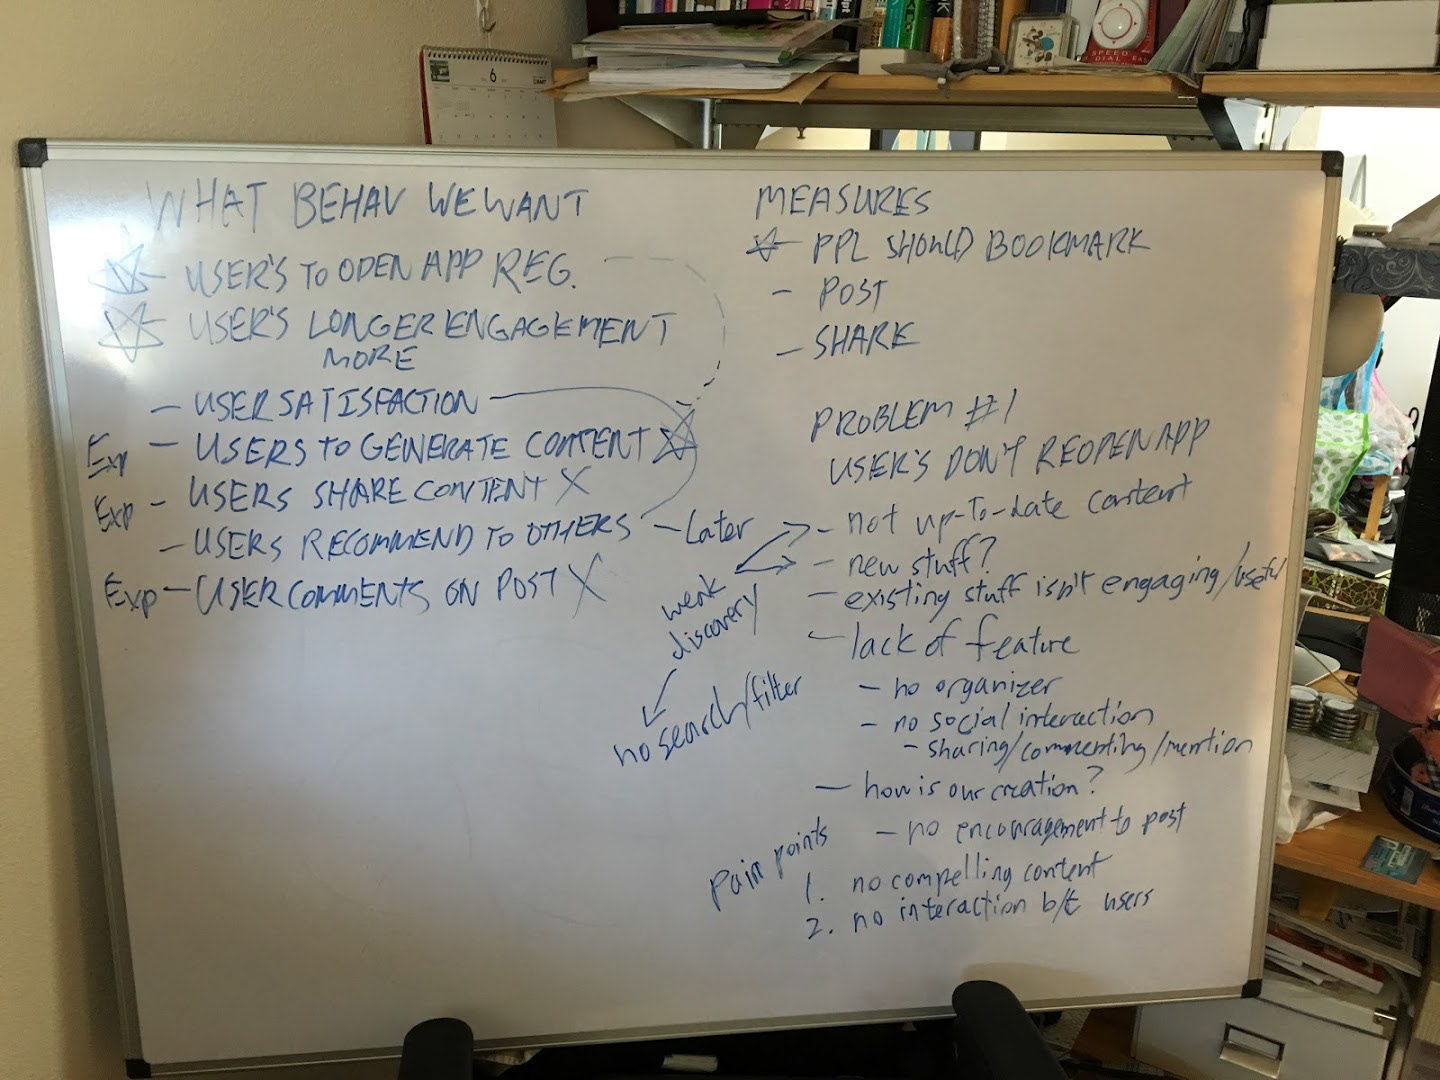 WHAT BEHAV WE WANT
- USER'S TO OPEN APP REG.
- USER'S LONGER ENGAGEMENT
MORE
- USER SATISFACTION
Exp - USERS TO GENERATE CONTENT
Exp - USERS SHARE CONTENT X
- USERS RECOMMEND TO OTHERS - Later
Exp - USER COMMENTS ON POST X
MEASURES
- PPL SHOULD BOOKMARK
- POST
- SHARE
PROBLEM #1
USER'S DON'T REOPEN APP
- not up-to-date content
- new stuff?
- existing stuff isn't engaging/useful
- lack of feature
- no organizer
- no social interaction
- sharing/commenting/mention
- how is our creation?
- no encouragement to post
weak
discovery
no search/filter
pain points
1. no compelling content
2. no interaction b/t users
6
SPEED
DIAL